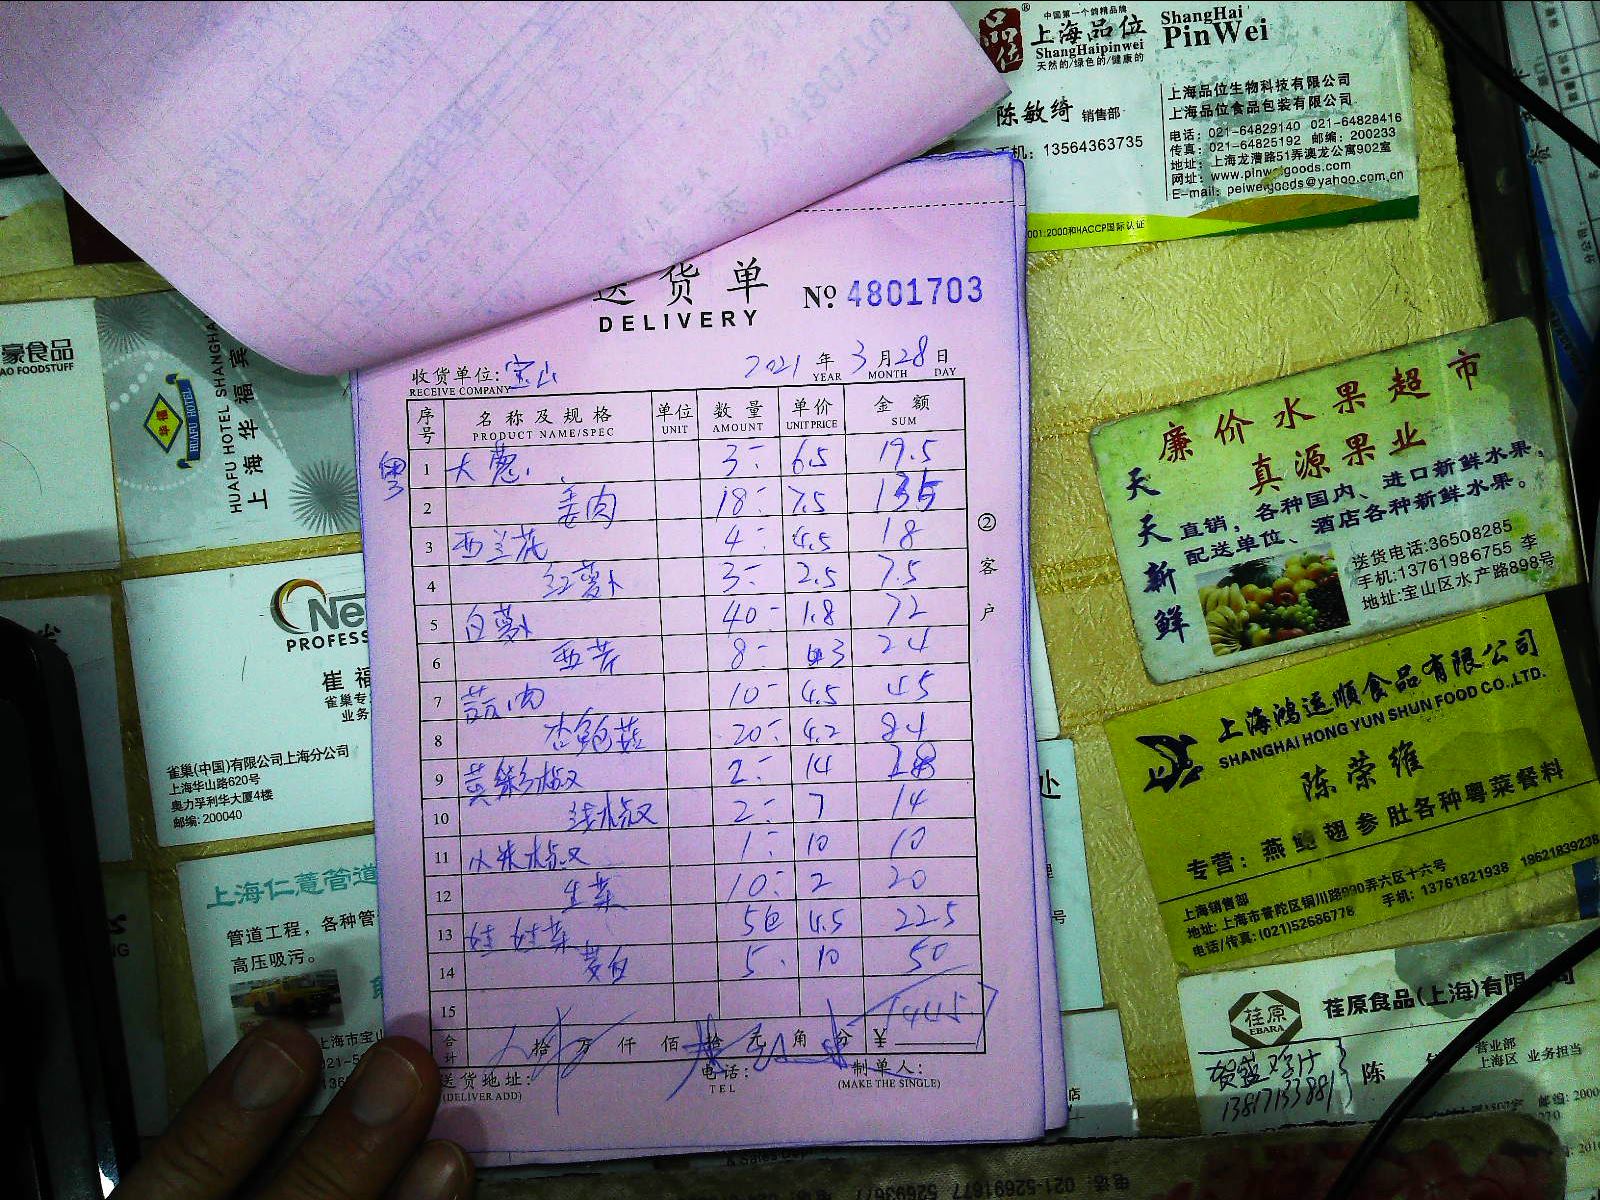 中国第一个鸽精品牌
品位
上海品位
ShangHaipinwei
天然的/绿色的/健康的
ShangHai
PinWei
陈敏绮 销售部
手机：13564363735
上海品位生物科技有限公司
上海品位食品包装有限公司
电话：021-64829140 021-64828416
传真：021-64825192 邮编：200233
地址：上海龙漕路51弄澳龙公寓902室
网址：www.pinweigoods.com
E-mail：peiweigoods@yahoo.com.cn
001:2000和HACCP国际认证
送货单
DELIVERY
No 4801703
收货单位: 宝山
RECEIVE COMPANY
2021 年 3 月 28 日
YEAR MONTH DAY
序号 名称及规格 单位 数量 单价 金额
PRODUCT NAME/SPEC UNIT AMOUNT UNIT PRICE SUM
1 大葱 3 6.5 19.5
2 姜肉 18 7.5 135
3 西兰花 4 4.5 18
4 红萝卜 3 2.5 7.5
5 白萝卜 40 1.8 72
6 西芹 8 3 24
7 10 4.5 45
8 杏鲍菇 20 4.2 84
9 黄彩椒 2 14 28
10 2 7 14
11 小米椒 1 10 10
12 生菜 10 2 20
13 娃娃菜 5包 4.5 22.5
14 茭白 5 10 50
15
合计 拾 万 仟 佰 拾 元 角 分 ¥
送货地址:
(DELIVER ADD)
电话:
TEL
制单人:
(MAKE THE SINGLE)
② 客户
豪食品
AO FOODSTUFF
华福
HUAFU HOTEL
HUAFU HOTEL SHANGHA
上海华福宾
Ne
PROFESS
崔福
雀巢专
业务
雀巢(中国)有限公司上海分公司
上海华山路620号
奥力孚利华大厦4楼
邮编: 200040
上海仁薏管道
管道工程，各种管
高压吸污。
上海市宝山
廉价水果超市
真源果业
天天新鲜
直销，各种国内、进口新鲜水果，
配送单位、酒店各种新鲜水果。
送货电话:36508285
手机:13761986755 李
地址:宝山区水产路898号
上海鸿运顺食品有限公司
SHANGHAI HONG YUN SHUN FOOD CO.,LTD.
陈荣维
专营：燕鲍翅参肚各种粤菜餐料
上海销售部
地址: 上海市普陀区铜川路990弄六区十六号
电话/传真: (021)52686778 手机: 13761821938 18621839238
荏原
EBARA
荏原食品(上海)有限公司
陈
营业部
上海区 业务担当
13817133881